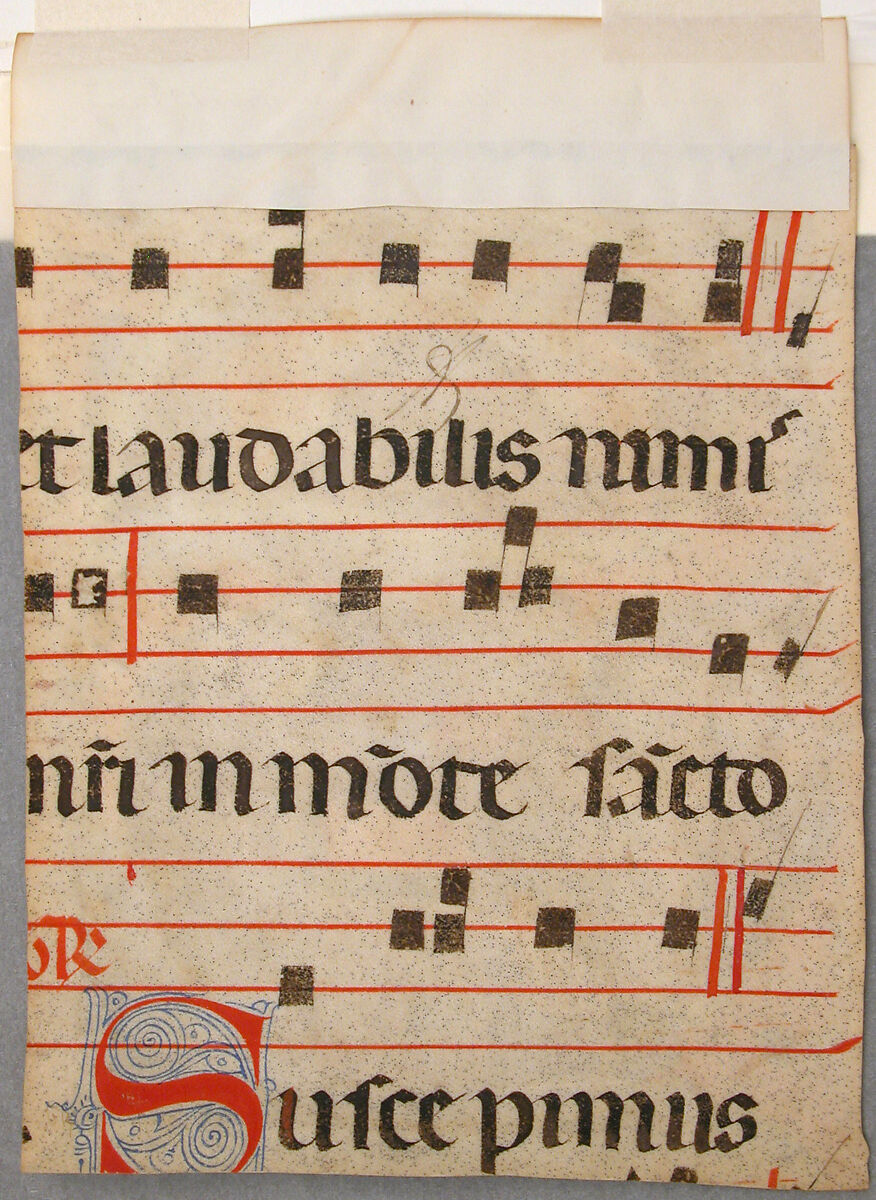 et laudabilis nimiˢ
nr̄i in mōte sācto
Suscepimus